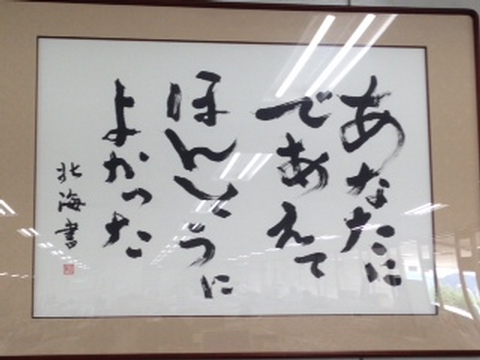 あなたに
であえて
ほんとうに
よかった
北海書